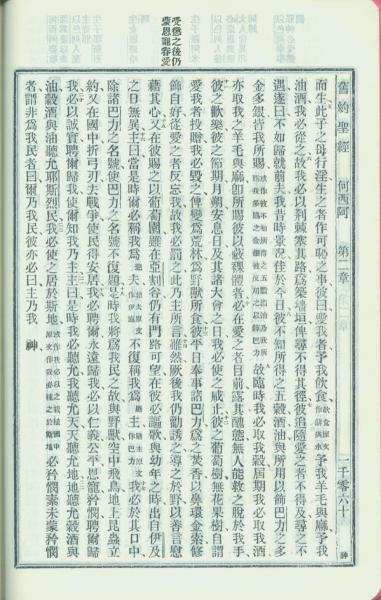 舊約聖經 何西阿 第二章 一千零六十
受懲之後仍
蒙恩寵眷愛
而生此子之母行淫生之者作可恥之事彼曰愛我者予我飲食予我羊毛與麻予我
油酒我必從之故我必以荆棘塞其路爲築墻垣俾尋不得其徑彼追隨愛之者不得及尋之不
遇遂曰不如歸就前夫昔時景況佳於今日彼不知所得之五穀酒油與所用以飾巴力之多
金多銀皆我所賜故臨時我必取我穀屆期我必取我酒
亦取我之羊毛與麻卽所賜彼以蔽裸體者必在愛之者目前露其醜態無人能救之脫於我手
彼之歡樂彼之節期月朔安息日及其諸大會之日我必使之咸止彼之葡萄樹無花果樹自謂
愛我者投贈我必毀之俾變爲荒林爲野獸所食彼平日奉事諸巴力爲之焚香以鼻環金索修
飾自好從愛之者反忘我故我必罰之此乃主所言雖然厥後我仍勸誘之導之於野以善言慰
藉其心又在彼賜之以葡萄園雖在亞割谷仍有門路可望在彼必謳歌與幼年之時出自伊及
之日無異主曰當是時爾必稱我爲夫不復稱我爲主我必於其口中
除諸巴力之名號使巴力之名號不復題是時我將爲我民之故與野獸空中飛鳥地上昆蟲立
約又在國中折弓刃去戰爭使民得安居我必聘爾永遠歸我必以仁義公平恩寵矜憫聘爾歸
我必以誠實聘爾歸我使爾知我乃主主曰是時我必聽允我聽允天天聽允地地聽允穀酒與
油穀酒與油聽允耶斯烈民我必使之居於斯地必矜憫素未蒙矜憫
者謂非爲我民者曰爾乃我民彼亦必曰主乃我神